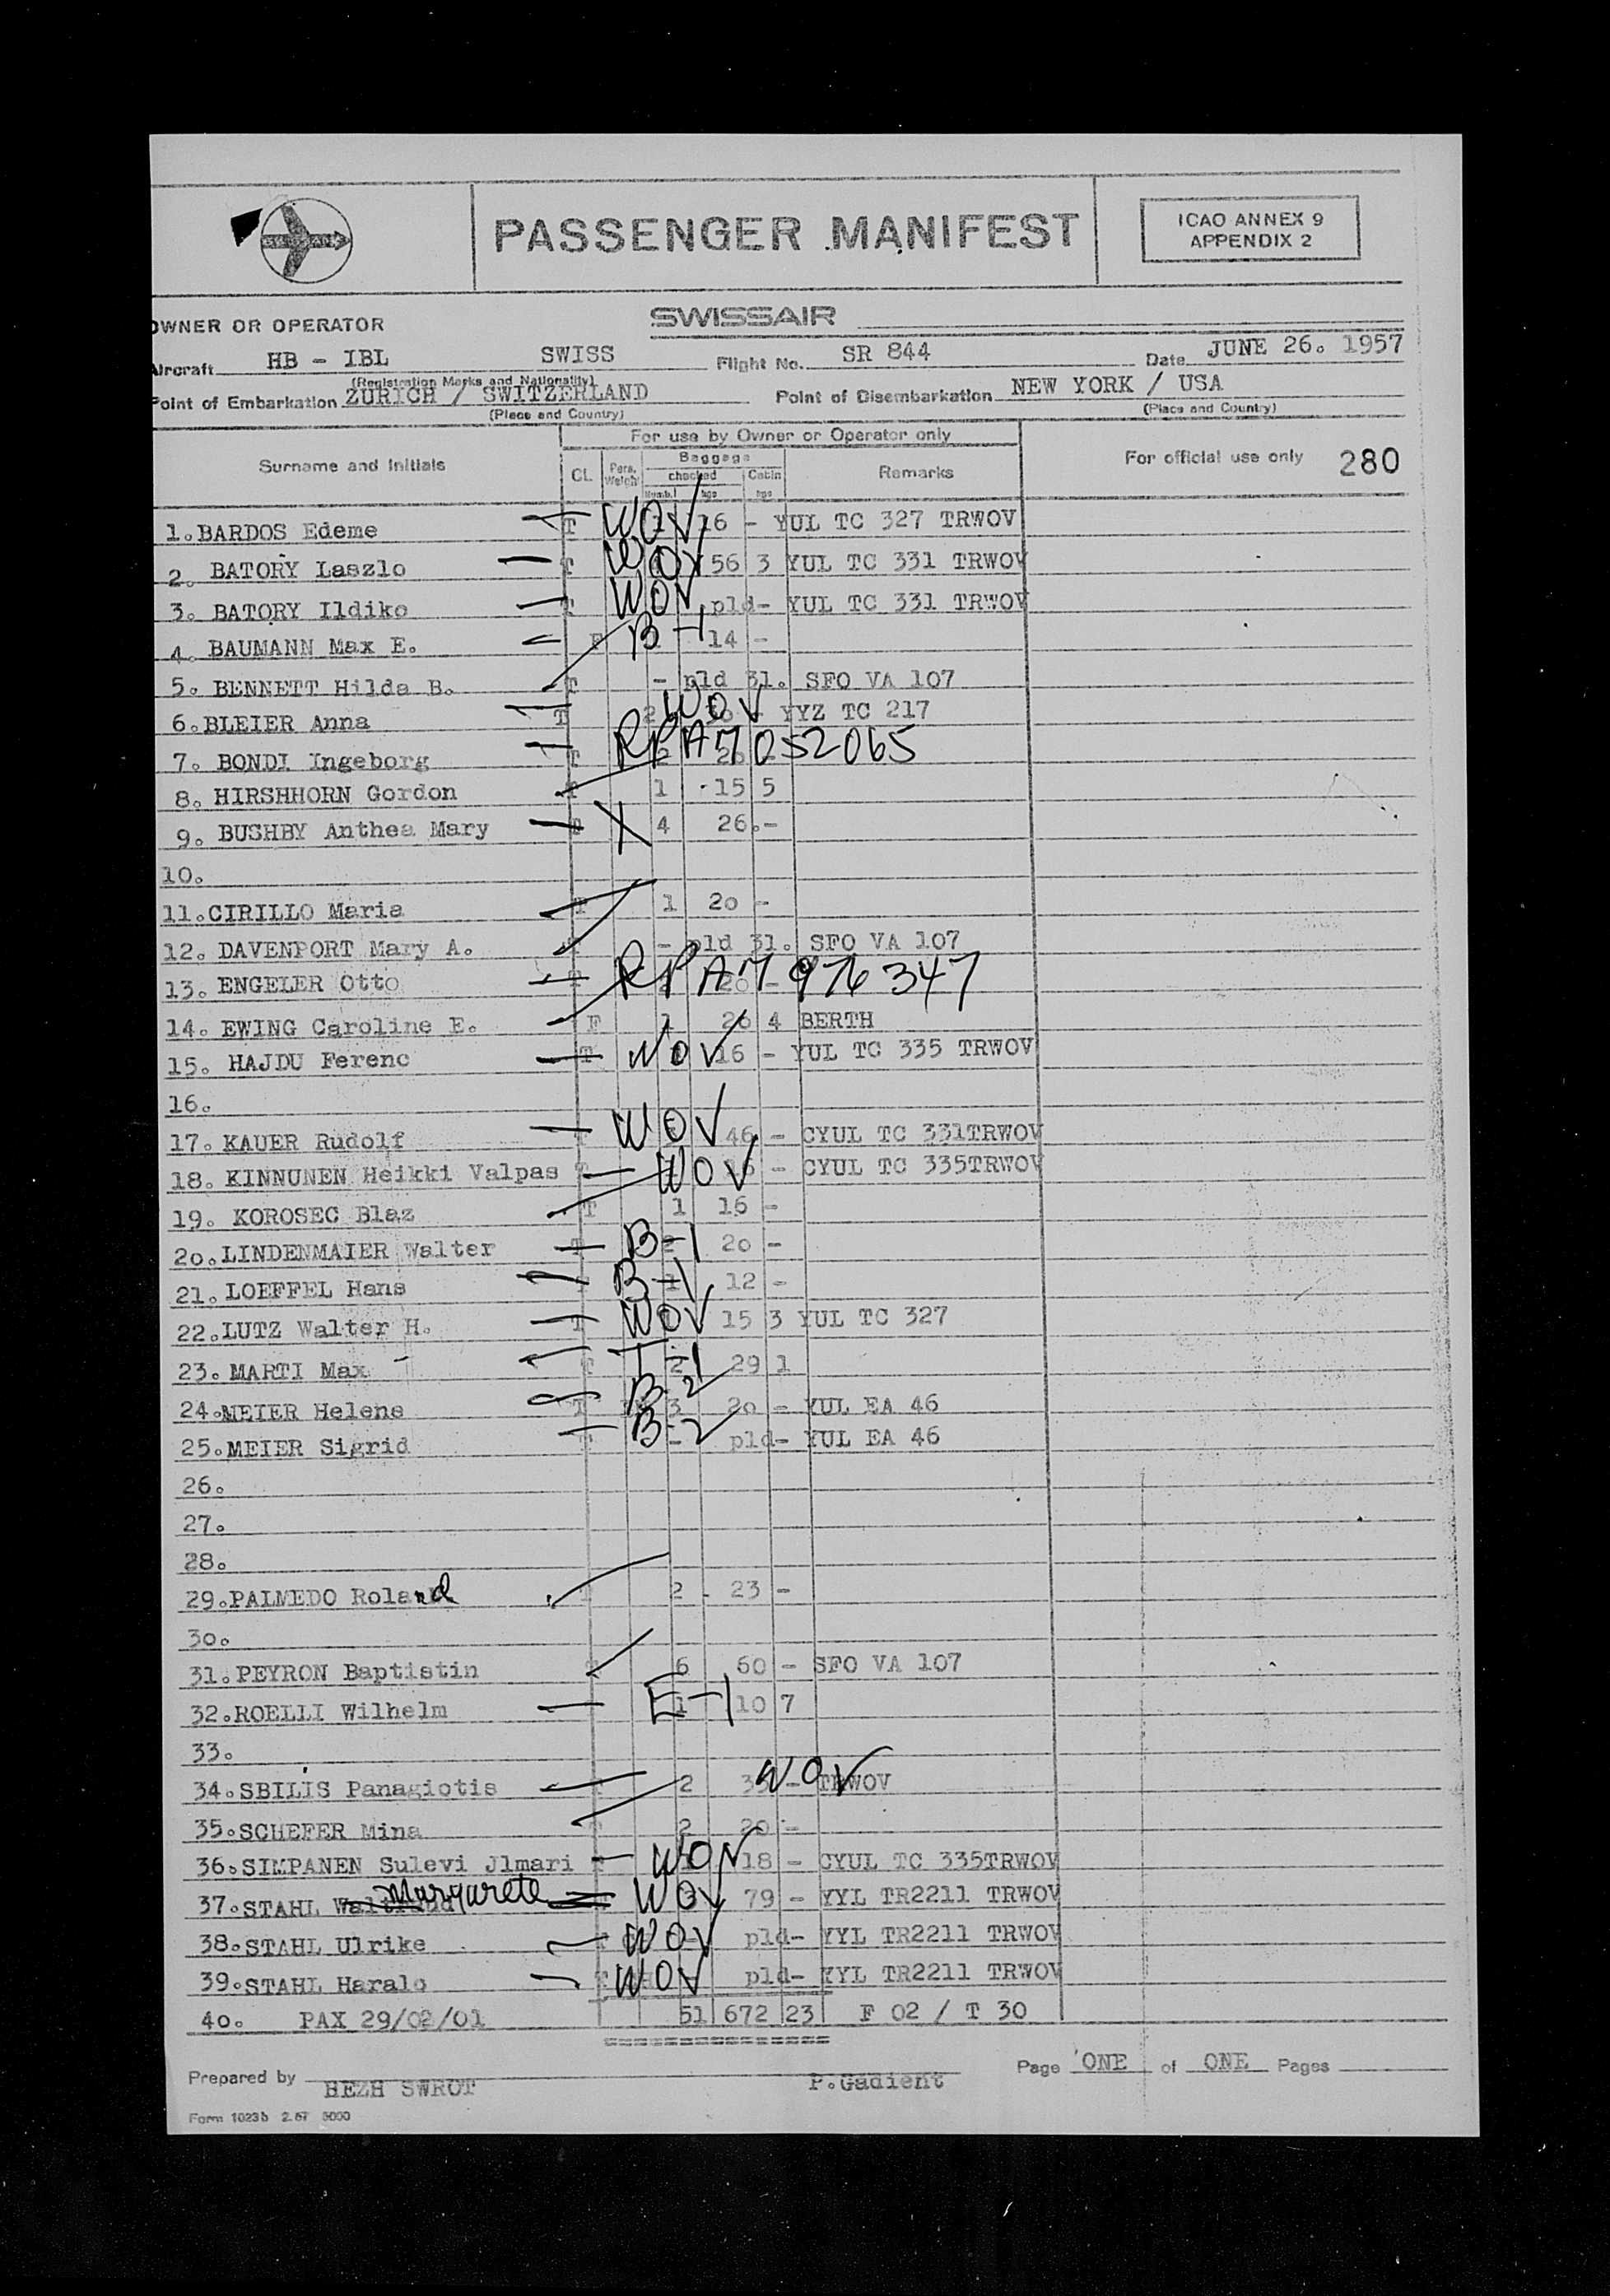 PASSENGER MANIFEST
ICAO ANNEX 9
APPENDIX 2
OWNER OR OPERATOR SWISSAIR
Aircraft HB - IBL SWISS Flight No. SR 844 Date JUNE 26. 1957
(Registration Marks and Nationality)
Point of Embarkation ZURICH / SWITZERLAND Point of Disembarkation NEW YORK / USA
(Place and Country) (Place and Country)
For use by Owner or Operator only
Surname and Initials CL. Pers. Weight Baggage checked Numb. kgs Cabin kgs Remarks For official use only 280
1. BARDOS Edeme T WOV 16 - YUL TC 327 TRWOV
2. BATORY Laszlo T WOV 56 3 YUL TC 331 TRWOV
3. BATORY Ildiko T WOV pld- YUL TC 331 TRWOV
4. BAUMANN Max E. F B-1 14 -
5. BENNETT Hilda B. T - pld 31. SFO VA 107
6. BLEIER Anna T 2 WOV - YYZ TC 217
7. BONDI Ingeborg T RPA7052065
8. HIRSHHORN Gordon T 1 15 5
9. BUSHBY Anthea Mary T X 4 26.-
10.
11. CIRILLO Maria T 1 20 -
12. DAVENPORT Mary A. - pld 31. SFO VA 107
13. ENGELER Otto T RPA7976347 20 -
14. EWING Caroline E. F 1 26 4 BERTH
15. HAJDU Ferenc T WOV 16 - YUL TC 335 TRWOV
16.
17. KAUER Rudolf WOV 46 - CYUL TC 331TRWOV
18. KINNUNEN Heikki Valpas WOV - CYUL TC 335TRWOV
19. KOROSEC Blaz T 1 16 -
20. LINDENMAIER Walter T B-1 2 20 -
21. LOEFFEL Hans B-1 1 12 -
22. LUTZ Walter H. T WOV 15 3 YUL TC 327
23. MARTI Max T T-1 2 29 1
24. MEIER Helene T B-2 3 20 - YUL EA 46
25. MEIER Sigrid T B-2 - pld- YUL EA 46
26.
27.
28.
29. PALMEDO Roland T 2 23 -
30.
31. PEYRON Baptistin 6 60 - SFO VA 107
32. ROELLI Wilhelm E-1 1 10 7
33.
34. SBILIS Panagiotis 2 WOV - TRWOV
35. SCHEFER Mina 2 20 -
36. SIMPANEN Sulevi Jlmari WOV 18 - CYUL TC 335TRWOV
37. STAHL Margarete WOV 79 - YYL TR2211 TRWOV
38. STAHL Ulrike WOV pld- YYL TR2211 TRWOV
39. STAHL Haralo T WOV pld- YYL TR2211 TRWOV
40. PAX 29/02/01 51 672 23 F 02 / T 30
Prepared by HEZH SWROT P.Gadient Page ONE of ONE Pages
Form 1023b 2.57 5000